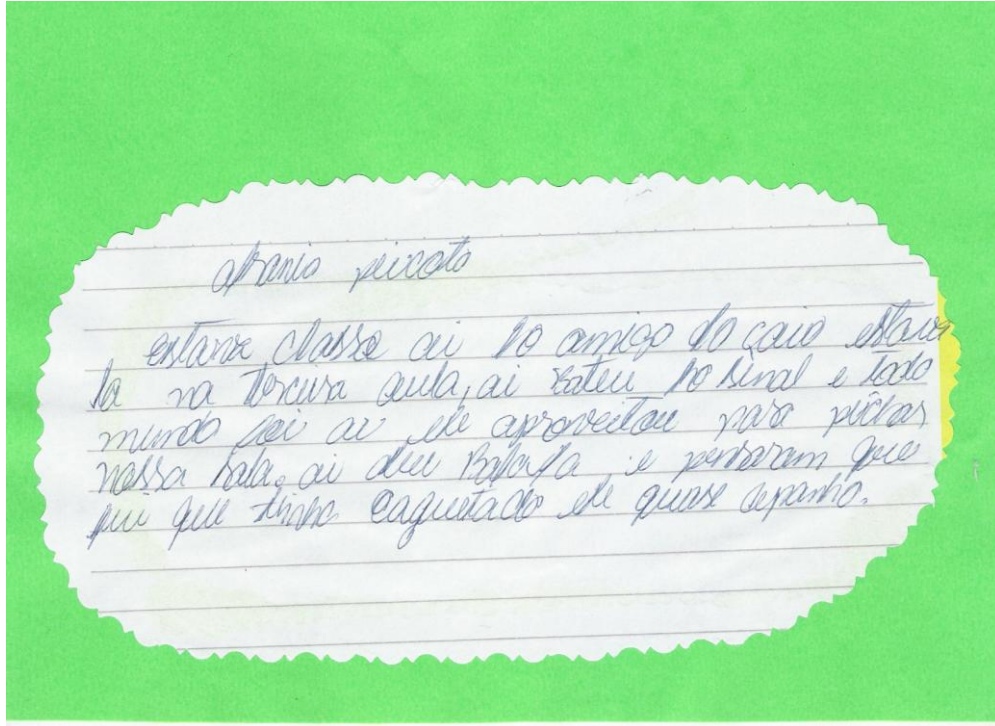 afranio peixoto
estava classe ai ho amigo do caio estava
la na terceira aula, ai bateu ho sinal e todo
mundo foi ai ele aproveitou para pichar
nossa sala, ai deu e pensaram que
fui que tinha caguetado ele quase apanho.